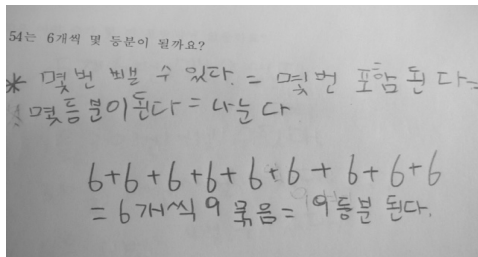 54는 6개씩 몇 등분이 될까요?
* 몇번 빼블 수 있다. = 몇번 포함된다=
몇등분이된다 = 나눈다
6+6+6+6+6+6+6+6+6
= 6개씩 9 묶음= 9등분 된다.